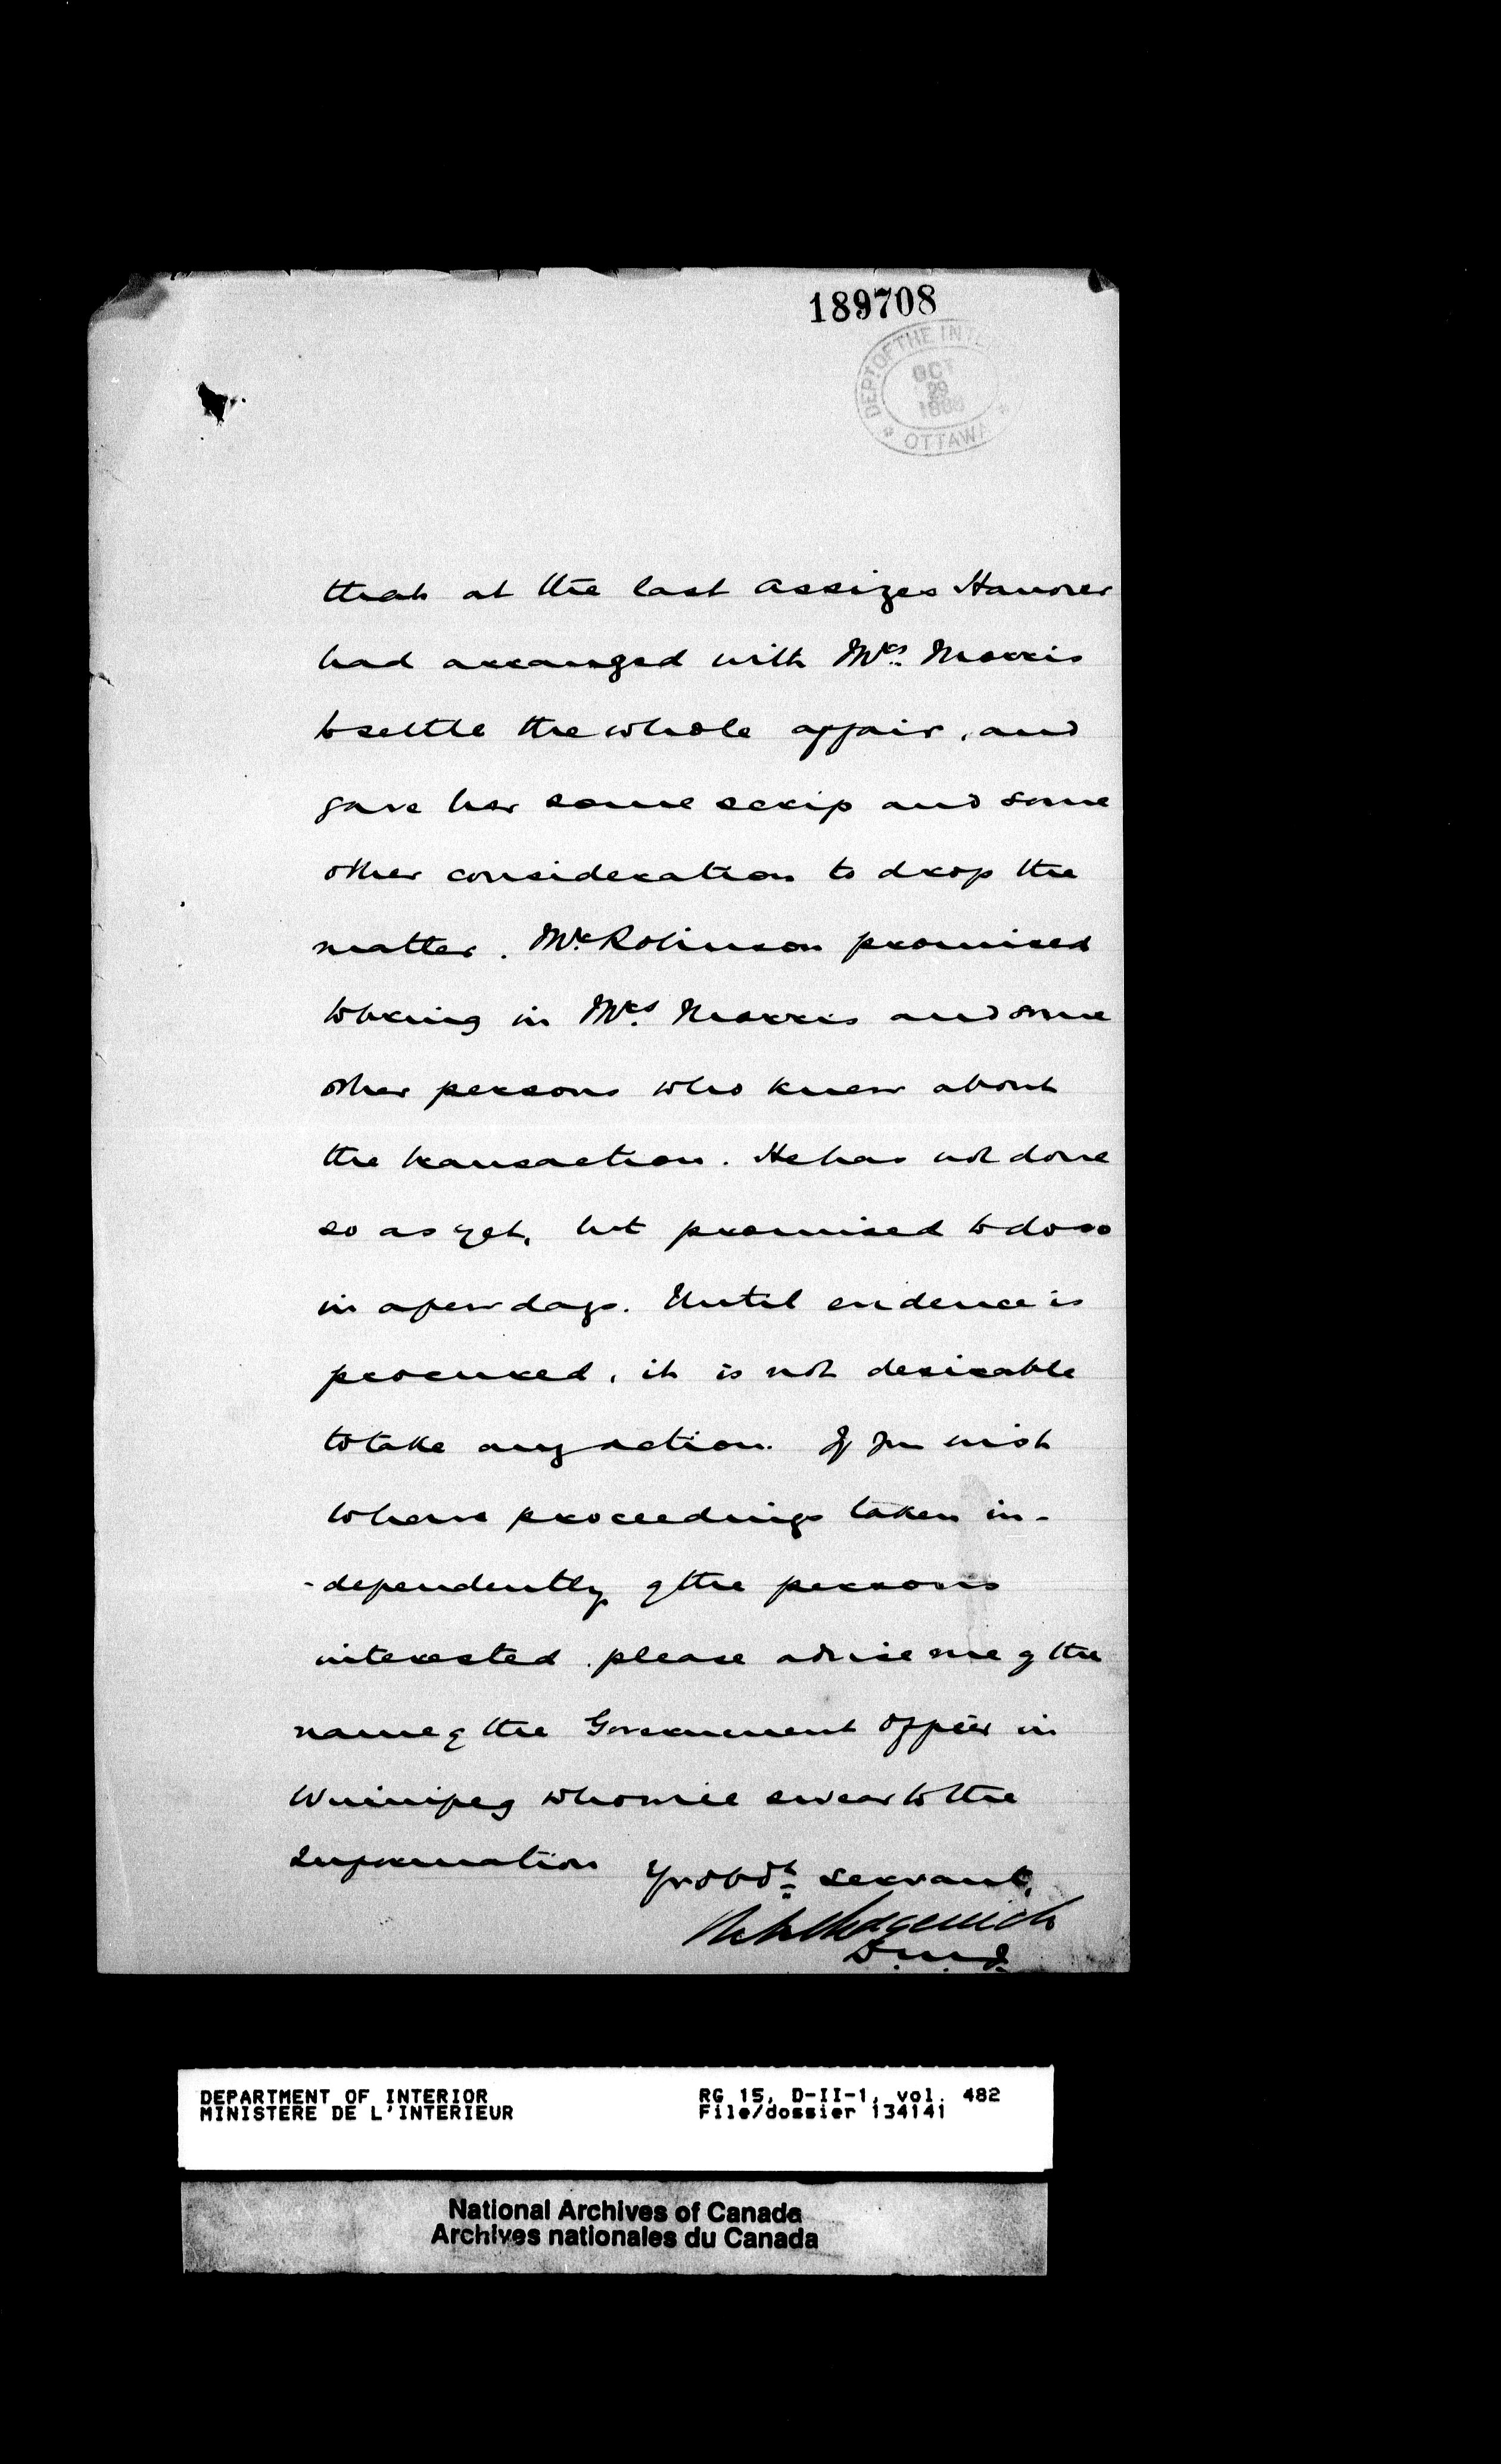 189708
DEPT. OF THE INTE
OCT
29
1888
OTTAWA
that at the last assizes Hanover
had arranged with Mrs. Morris
to settle the whole affair, and
gave her some scrip and some
other consideration to drop the
matter. Mr. Robinson promised
to bring in Mrs. Morris and some
other persons who knew about
the transaction. He has not done
so as yet, but promised to do so
in a few days. Until evidence is
procured, it is not desirable
to take any action. If you wish
to have proceedings taken in-
-dependently of the persons
interested please advise me of the
name of the Government Officer in
Winnipeg who will swear to the
Information
Yr obdt servant,
Sedgewick
D.M.J.
DEPARTMENT OF INTERIOR
MINISTERE DE L'INTERIEUR
RG 15, D-II-1, vol. 482
File/dossier 134141
National Archives of Canada
Archives nationales du Canada